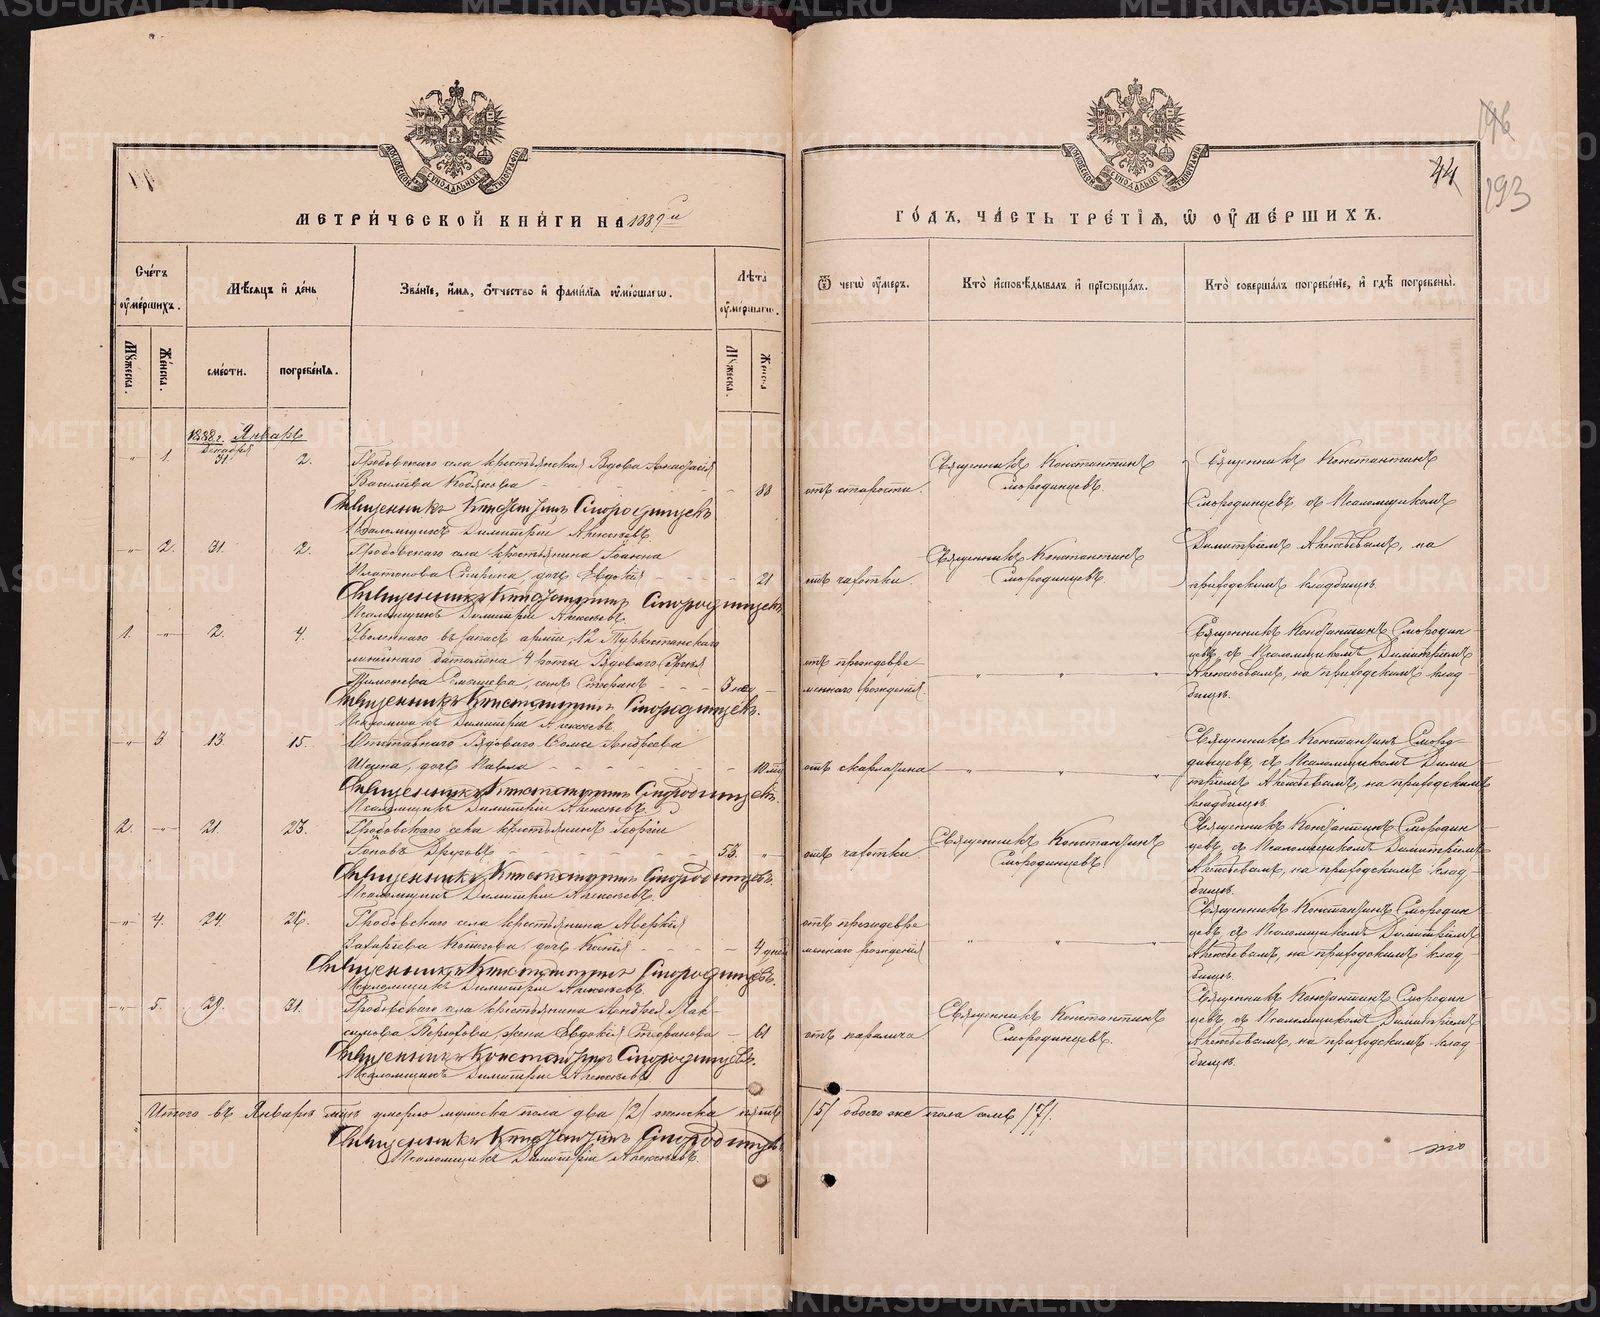 МЕТРИ́ЧЕСКОЙ КНИ́ГИ НА 1889й
ГО́ДЪ, ЧА́СТЬ ТРЕ́ТІѦ, Ѡ ОУМЕ́РШИХЪ.
44
193
Сче́тъ оумершихъ.
Мѣсяцъ и де́нь
Зва́ніе, и́мя, о́тчество и фами́лія оуме́ршагѡ.
Лѣта̀ оуме́ршагѡ.
Ѿ чегѡ̀ оу́меръ.
Кто̀ исповѣ́дывалъ и пріѡбща́лъ.
Кто̀ соверша́лъ погребе́ніе, и гдѣ̀ погребены̀.
Мꙋжеска.
Же́нска.
сме́рти.
погребе́нія.
Мꙋжеска.
Же́нска
1888 г. Январь
Декабря
" 1. 31 2. Гробовскаго села крестьянская вдова Анастасія
Васильева - 88 отъ старости.
Священникъ Константинъ Смородинцевъ
Священникъ Константинъ Смородинцевъ съ Псаломщикомъ Димитріемъ Алексѣевымъ, на приходскомъ кладбищѣ.
Священникъ Константинъ Смородинцевъ
Псаломщикъ Димитрій Алексѣевъ
" 2. 31. 2. Гробовскаго села крестьянина Іоанна
Платонова дочь Евдокія - 21 отъ чахотки.
Священникъ Константинъ Смородинцевъ.
Священникъ Константинъ Смородинцевъ
Псаломщикъ Димитрій Алексѣевъ.
1. " 2. 4. Уволеннаго въ запасъ арміи, 12 Туркестанскаго
линейнаго баталіона 4 роты рядоваго
сынъ Стефанъ - отъ преждевременнаго рожденія.
Священникъ Константинъ Смородинцевъ, съ Псаломщикомъ Димитріемъ
Алексѣевымъ, на приходскомъ кладбищѣ.
Священникъ Константинъ Смородинцевъ.
Псаломщикъ Димитрій Алексѣевъ
" 3 13. 15. Отставнаго рядоваго Ѳомы Андреева
дочь Павла - отъ скарлатина
Священникъ Константинъ Смородинцевъ, съ Псаломщикомъ Димитріемъ Алексѣевымъ, на приходскомъ
кладбищѣ.
Священникъ Константинъ Смородинцевъ.
Псаломщикъ Димитрій Алексѣевъ
2. " 21. 23. Гробовскаго села крестьянинъ Георгій
- 53. " отъ чахотки
Священникъ Константинъ Смородинцевъ
Священникъ Константинъ Смородинцевъ, съ Псаломщикомъ Димитріемъ
Алексѣевымъ, на приходскомъ кладбищѣ.
Священникъ Константинъ Смородинцевъ.
Псаломщикъ Димитрій Алексѣевъ.
" 4. 24. 26. Гробовскаго села крестьянина Аверкія
Захаріева дочь Ксенія - 4 дней отъ преждевременнаго рожденія
Священникъ Константинъ Смородинцевъ, съ Псаломщикомъ Димитріемъ
Алексѣевымъ, на приходскомъ кладбищѣ.
Священникъ Константинъ Смородинцевъ.
Псаломщикъ Димитрій Алексѣевъ.
" 5. 29. 31. Гробовскаго села крестьянина Андрея Максимова жена Евдокія Стефанова - 61 отъ паралича
Священникъ Константинъ Смородинцевъ.
Священникъ Константинъ Смородинцевъ, съ Псаломщикомъ Димитріемъ
Алексѣевымъ, на приходскомъ кладбищѣ.
Священникъ Константинъ Смородинцевъ.
Псаломщикъ Димитрій Алексѣевъ
Итого въ Январѣ мцѣ умерло мужеска пола два /2/ женска пять /5/ обоего же пола семь /7/.
Священникъ Константинъ Смородинцевъ
Псаломщикъ Димитрій Алексѣевъ.
METRIKI.GASO-URAL.RU